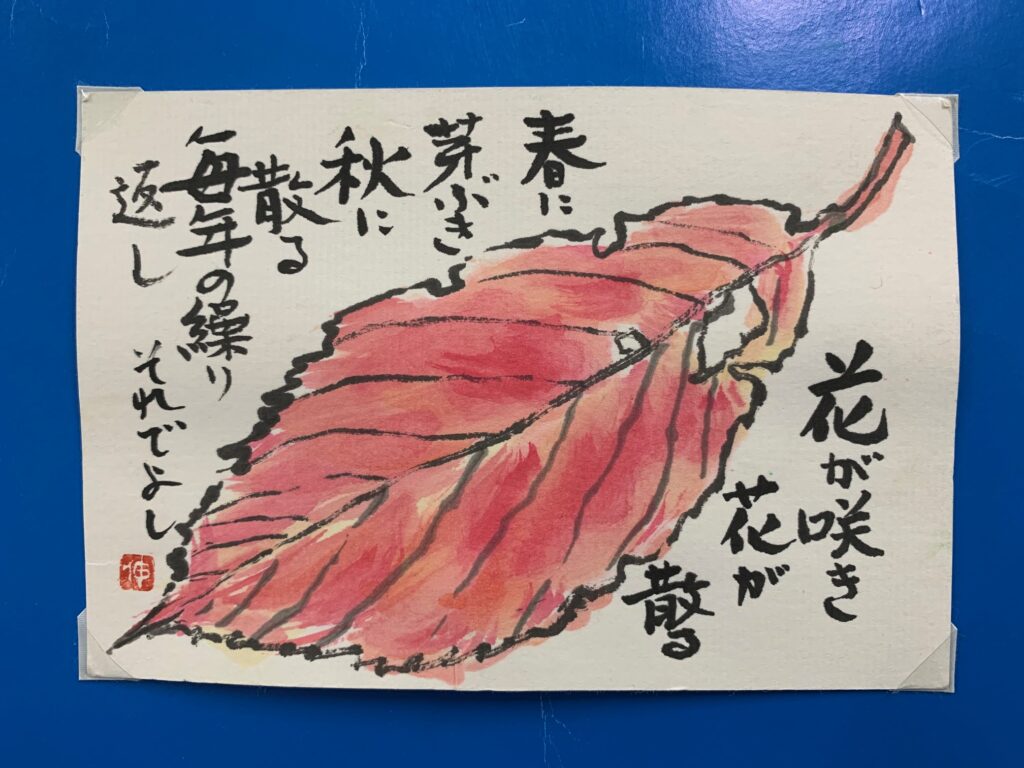 花が咲き
花が
散る
春に
芽ぶき
秋に
散る
毎年の繰り
返し それでよし